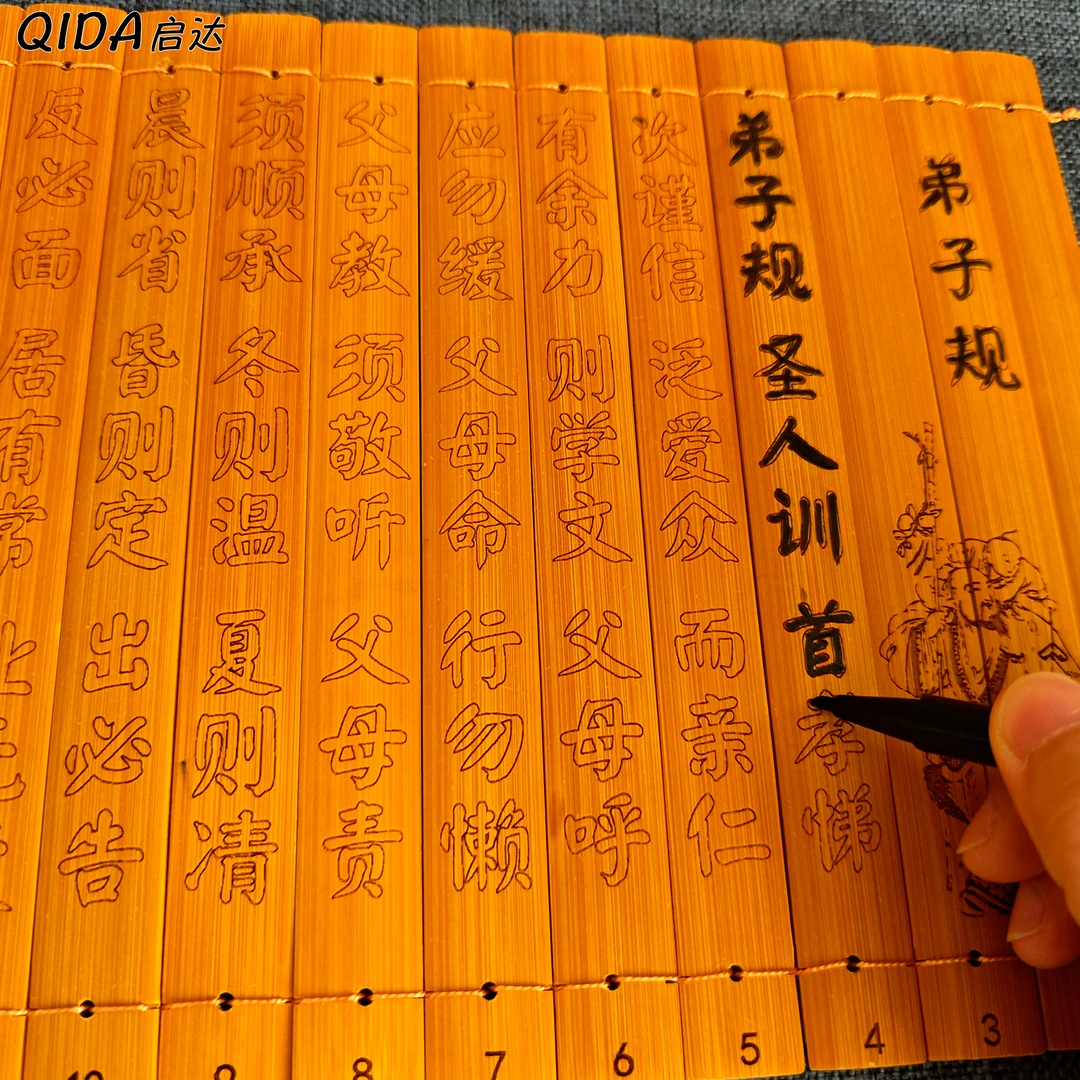 QIDA启达
弟子规
弟子规 圣人训 首孝悌
次谨信 泛爱众 而亲仁
有余力 则学文 父母呼
应勿缓 父母命 行勿懒
父母教 须敬听 父母责
须顺承 冬则温 夏则凊
晨则省 昏则定 出必告
反必面 居有常
10 9 8 7 6 5 4 3